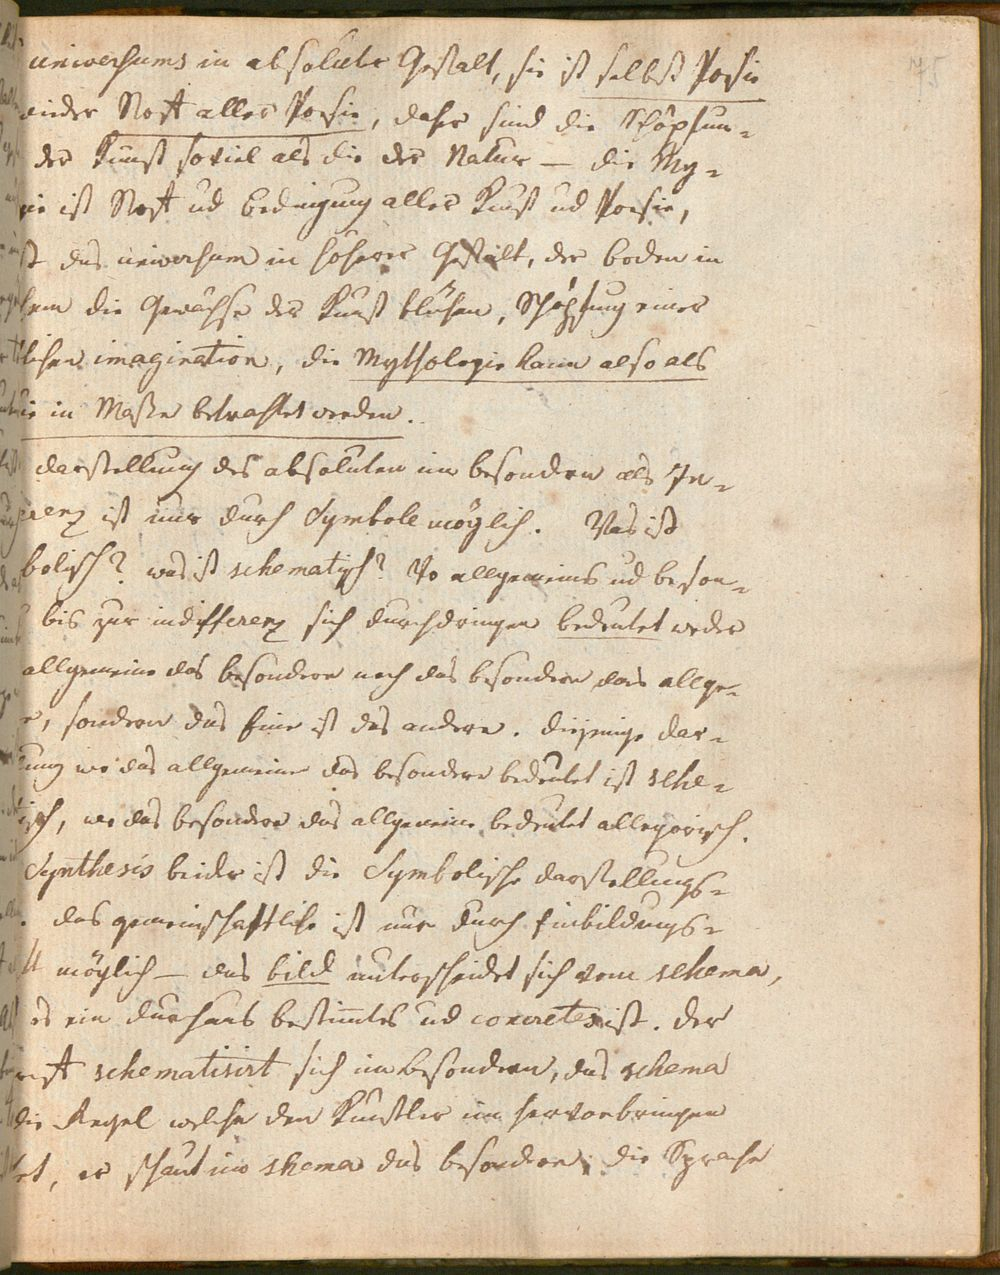 universums in absoluter Gestalt, sie ist selbst Poesie
under Stoff aller Poesie, daher sind die Schöpfun-
der Kunst soviel als die der Natur — die My-
ie ist Stoff ud bedingung aller Kunst ud Poesie,
st das universum in höherer Gestalt, der boden in
hem die Gewächse der Kunst blühen, Schöpfung einer
lichen imagination, die Mythologie kann also als
ie in Masse betrachtet werden.
darstellung des absoluten im besondern als In-
erenz ist nur durch Symbole möglich. Was ist
bolisch? was ist schematisch? Wo allgemeines ud beson-
bis zur indifferenz sich durchdringen bedeutet weder
allgemeine das besondere noch das besondere das allge-
e, sondern das Eine ist das andere. diejenige dar-
lung wo das allgemeine das besondere bedeutet ist sche-
tisch, wo das besondere das allgemeine bedeutet allegorisch.
Synthesis beider ist die Symbolische darstellungs-
das gemeinschaftliche ist nur durch Einbildungs-
ft möglich — das bild unterscheidet sich vom schema,
es ein durchaus bestimmtes ud concretes ist. der
schematisirt sich im besondern, das schema
die Regel welche den Künstler im hervorbringen
et, er schaut im shema das besondere; die Sprache
75